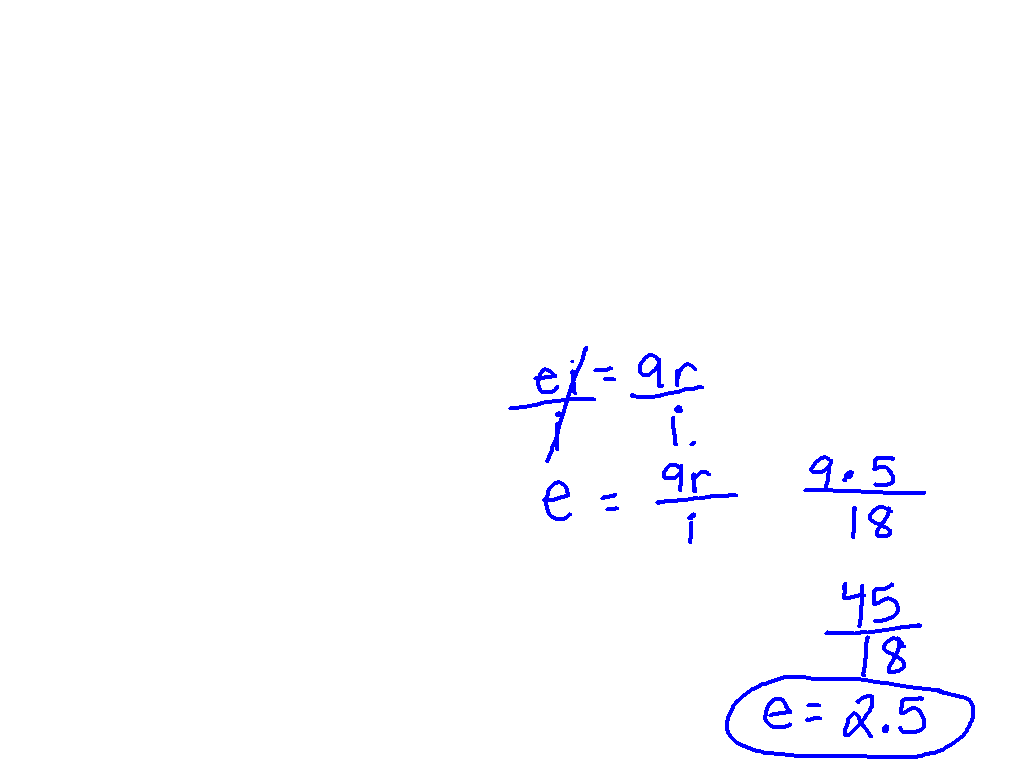 ei/i = 9r/i.
e = 9r/i
9 · 5/18
45/18
e = 2.5